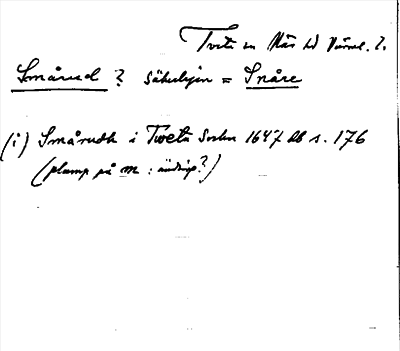 Tveta sn Näs hd Värml. ?.
Smårud ? Säkerligen = Snåre
(i) Smårudh i Tweta Sochn 1647 Jb s. 176
(plump på m : ändrip?)